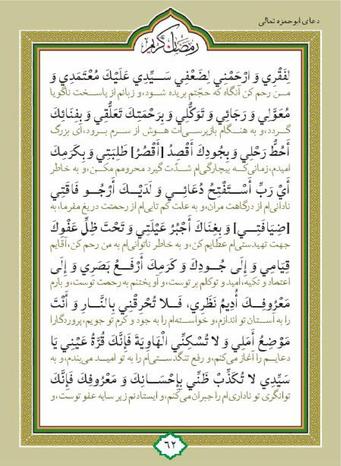 دعای ابوحمزه ثمالی
رمضان کریم
لِفَقْرِي وَ ارْحَمْنِي لِضَعْفِي سَيِّدِي عَلَيْكَ مُعْتَمَدِي وَ
من رحم کن آنگاه که حجّتم بریده شود، و زبانم از پاسخت ناگویا
مُعَوَّلِي وَ رَجَائِي وَ تَوَكُّلِي وَ بِرَحْمَتِكَ تَعَلُّقِي وَ بِفِنَائِكَ
گردد، و به هنگام بازپرسی‌ات هوش از سرم برود، ای بزرگ
أَحُطُّ رَحْلِي وَ بِجُودِكَ أَقْصِدُ [أَقْصُرُ] طَلِبَتِي وَ بِكَرَمِكَ
امیدم، زمانی‌که بیچارگی‌ام شدت گیرد محرومم مکن، و به خاطر
أَيْ رَبِّ أَسْتَفْتِحُ دُعَائِي وَ لَدَيْكَ أَرْجُو فَاقَتِي
نادانی‌ام از درگاهت مران، و به علت کم تابی‌ام از رحمتت دریغ مفرما، به
[ضِيَافَتِي] وَ بِغِنَاكَ أَجْبُرُ عَيْلَتِي وَ تَحْتَ ظِلِّ عَفْوِكَ
جهت تهیدستی‌ام عطایم کن، و به خاطر ناتوانی‌ام به من رحم کن، آقایم
قِيَامِي وَ إِلَى جُودِكَ وَ كَرَمِكَ أَرْفَعُ بَصَرِي وَ إِلَى
اعتماد و تکیه، امید و توکلم بر توست، و آویختنم به رحمتت توست، و بارم
مَعْرُوفِكَ أُدِيمُ نَظَرِي، فَلا تُحْرِقْنِي بِالنَّارِ وَ أَنْتَ
را به آستان تو اندازم، و خواسته‌ام را به جود و کرم تو جویم، پروردگارا
مَوْضِعُ أَمَلِي وَ لا تُسْكِنِّي الْهَاوِيَةَ فَإِنَّكَ قُرَّةُ عَيْنِي يَا
دعایم را آغاز می‌کنم، و رفع تنگدستی‌ام را به تو امید می‌بندم، و به
سَيِّدِي لا تُكَذِّبْ ظَنِّي بِإِحْسَانِكَ وَ مَعْرُوفِكَ فَإِنَّكَ
توانگری تو ناداری‌ام را جبران می‌کنم، و ایستادنم زیر سایه عفو توست، و
۶۲